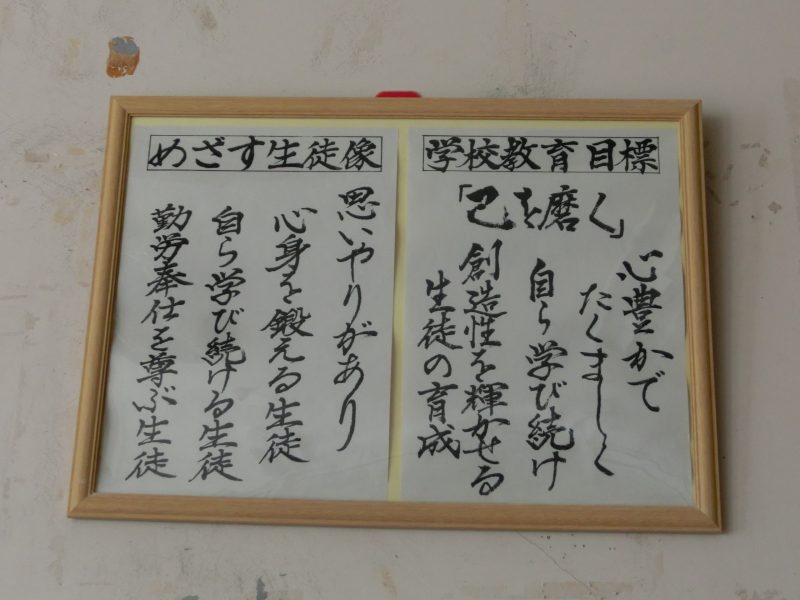 学校教育目標
「己を磨く」
心豊かで
たくましく
自ら学び続け
創造性を輝かせる
生徒の育成
めざす生徒像
思いやりがあり
心身を鍛える生徒
自ら学び続ける生徒
勤労奉仕を尊ぶ生徒